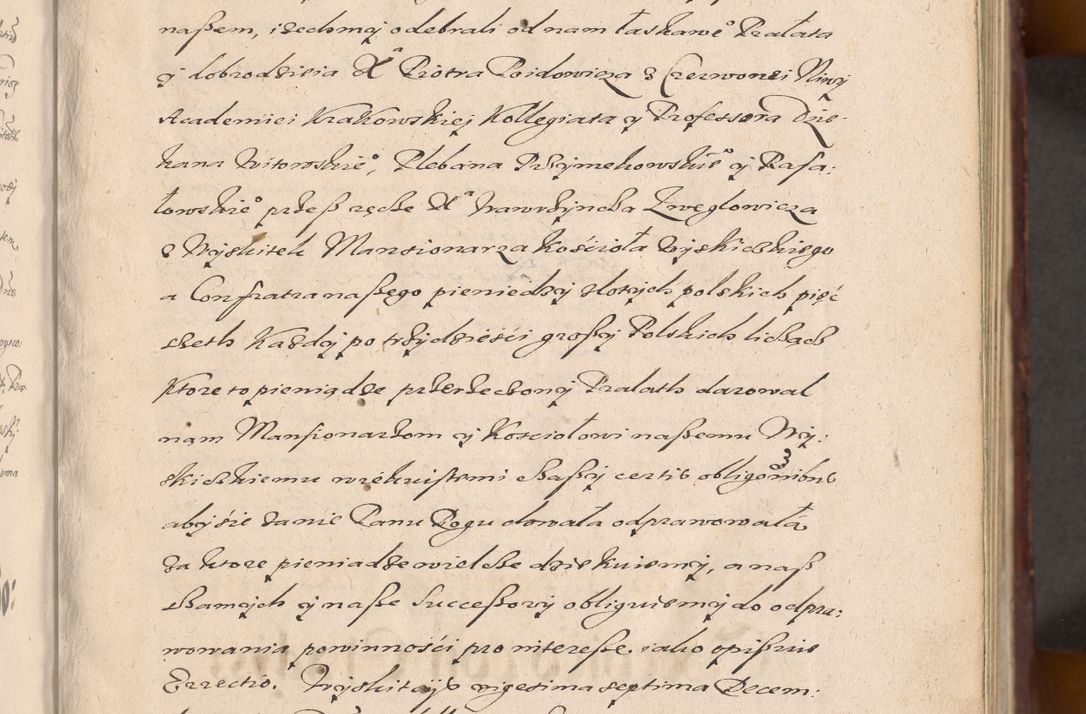 naszem, izechmy odebrali od nam łaskawe° Prałata
y dobrodzieia X^a Piotra Poidowicza z Czerwonei Niwy
Academiei Krakowskiej Kollegiata y Professora Dzie-
kana Witowskie°, Plebana Przymekowskie° y Rafa:
łowskie° przesz ręcze X^a Wawrzyncza Zweglowicza
z Wyskitek Mansionarza Kościoła Wyskiczkiego
a Confratra naszego pieniedzy złotych polskich pięć
szeth Kazdy po trzydzieści groszy Polskich liczącz
Ktore to pieniądze przerzeczony Prałath darował
nam Mansionarzom y Kosciołowi naszemu Wy:
skiczkiemu wiekuistemi czaszy certis obligationibus
abyśie za nie Panu Bogu chwała odprawowała,
za ktore pieniadze wielcze dziekuiemy, a nasz
szamych y nasze Successory obliguiemy do odpra:
wowania powinnośći pro interesse, iako opiszuie
Errectio. Wyskitcijs vigesima septima Decem: